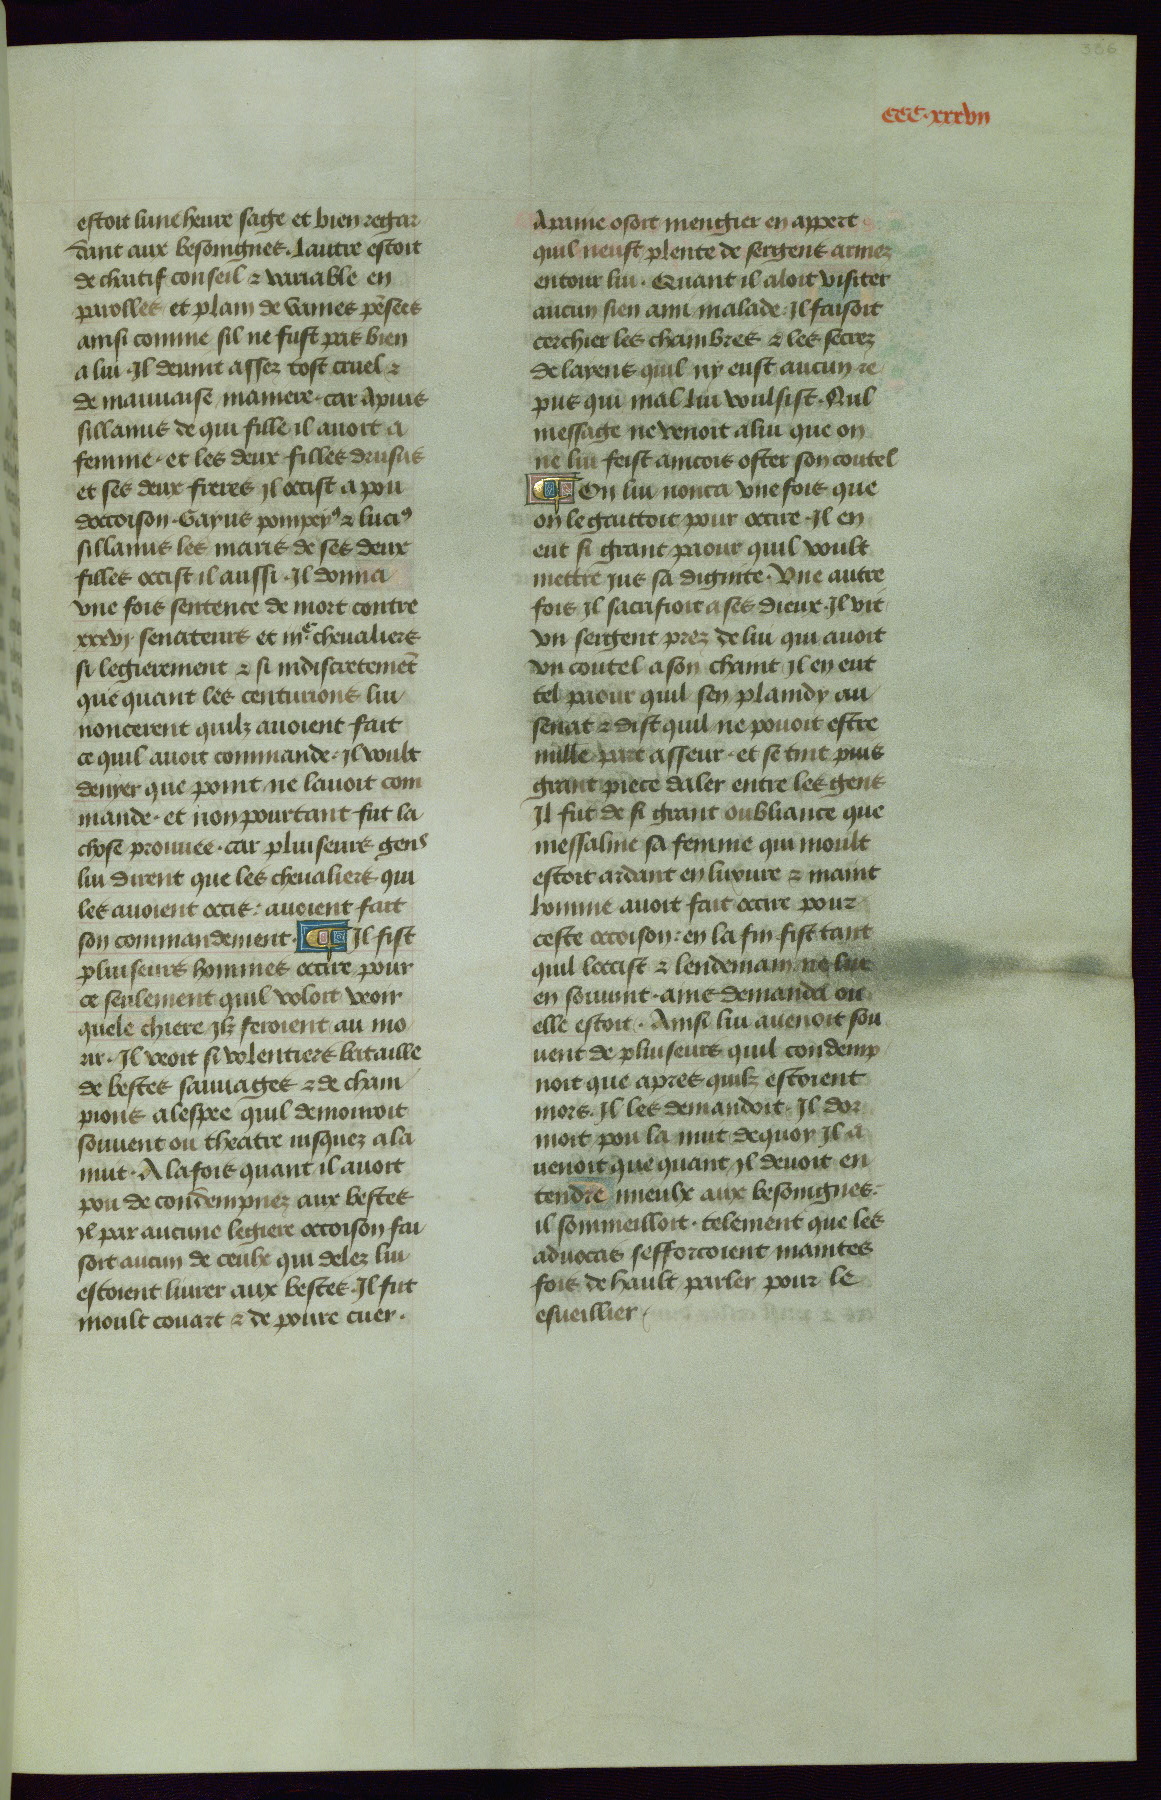 336
CCC.xxxvii
estoit lune heure sage et bien regar
dant aux besoingnes. Lautre estoit
de chaitif conseil & variable en
parolles et plain de vaines pẽsees
ainsi comme sil ne fust pas bien
a lui. Il deuint assez tost cruel &
de mauuaise maniere. car Apius
sillanus de qui fille il auoit a
femme. et les deux filles drusus
et ses deux freres Il occist a pou
doccoison. Gayus pompeyꝰ & luciꝰ
sillanus les maris de ses deux
filles occist il aussi. Il donna
vne fois sentence de mort contre
xxxvj senateurs et iiiͨ cheualiers
si legierement & si indiscretemẽt
que quant les centurions lui
noncerent quilz auoient fait
ce quil auoit commande. Il voult
denyer que point ne lauoit com
mande. et non pourtant fut la
chose prouuee. car pluiseurs gens
lui dirent que les cheualiers qui
les auoient occis: auoient fait
son commandement. Il fist
pluiseurs hommes occire pour
ce seulement quil voloit veoir
quele chiere Ilz feroient au mo
rir. Il veoit si volentiers bataille
de bestes sauuages & de cham
pions a lespee quil demouroit
souuent ou theatre iusquez a la
nuit. A la fois quant il auoit
pou de condempnez aux bestes
Il par aucune legiere occoison fai
soit aucun de ceulx qui delez lui
estoient liurer aux bestes. Il fut
moult couart & de poure cuer.
A paine osoit mengier en appert
quil neust plente de sergens armez
entour lui. Quant il aloit visiter
aucun sien ami malade. Il faisoit
cerchier les chambres & les secrez
de layens quil ny eust aucun re
pus qui mal lui voulsist. Nul
message ne venoit a lui que on
ne lui feist aincois oster son coutel
On lui nonca vne fois que
on le gaittoit pour occire. Il en
eut si grant paour quil voult
mettre jus sa dignite. Vne autre
fois Il sacrifioit a ses dieux. Il vit
vn sergent prez de lui qui auoit
vn coutel a son chaint Il en eut
tel paour quil sen plaindy au
senat & dist quil ne pouoit estre
nulle part asseur. et se tint puis
grant piece daler entre les gens
Il fut de si grant oubliance que
messaline sa femme qui moult
estoit ardant en luxure & maint
homme auoit fait occire pour
ceste occoison: en la fin fist tant
quil loccist & lendemain ne lui
en souuint. ains demanda ou
elle estoit. Ainsi lui auenoit sou
uent de pluiseurs quil condemp
noit que apres quilz estoient
mors. Il les demandoit. Il dor
moit pou la nuit dequoy Il a
uenoit que quant Il deuoit en
tendre mieulx aux besoingnes.
il sommeilloit. telement que les
aduocas sefforcoient maintes
fois de hault parler pour le
esueillier